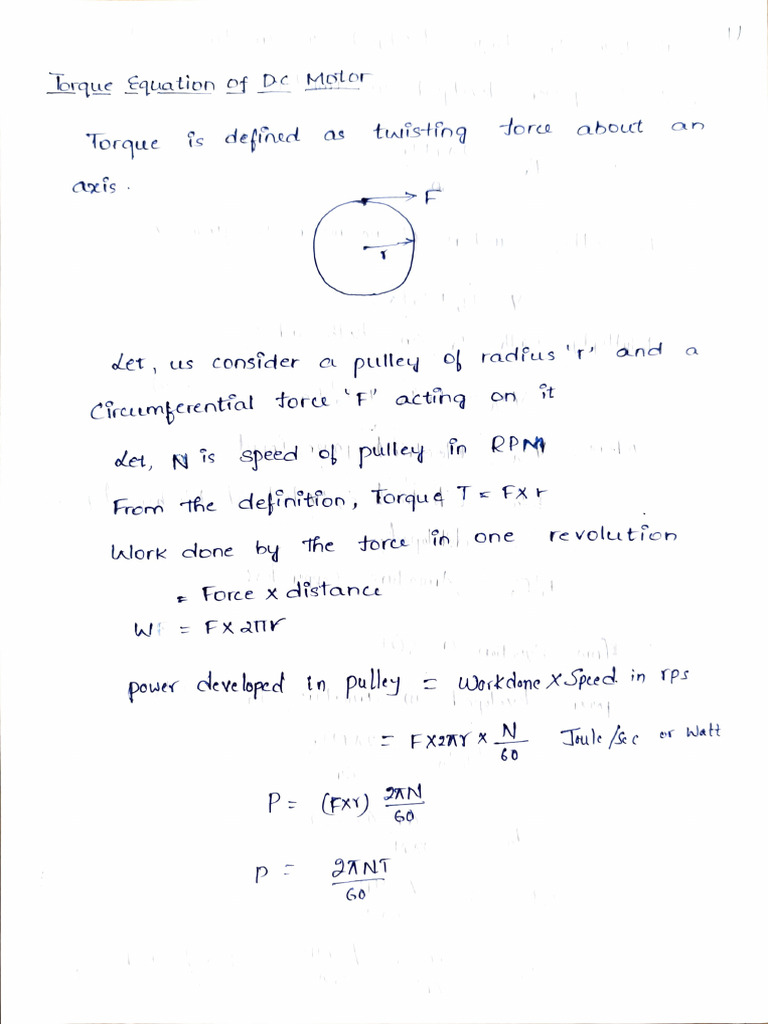 11
Torque Equation of DC Motor
Torque is defined as twisting force about an
axis.
F
r
Let, us consider a pulley of radius 'r' and a
Circumferential force 'F' acting on it
Let, N is speed of pulley in RPM
From the definition, Torque T = F×r
Work done by the force in one revolution
= Force × distance
W = F×2πr
power developed in pulley = Workdone × Speed in rps
= F×2πr × N/60 Joule/sec or Watt
P = (F×r) 2πN/60
P = 2πNT/60